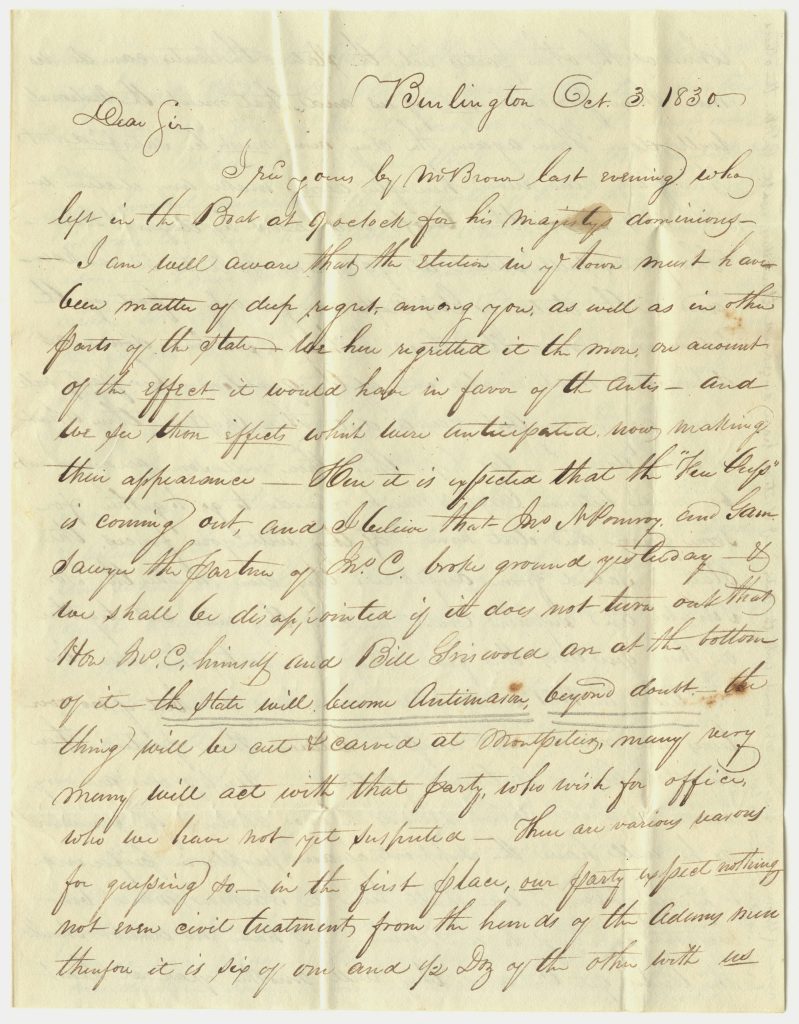 Burlington Oct. 3. 1830.
Dear Sir
I rec yours by Mr Brown last evening who
left in the Boat at 9 oclock for his majestys dominions—
— I am well aware that the election in yr town must have
been matter of deep regret, among you, as well as in other
parts of the State — We here regretted it the more, on account
of the effect it would have in favor of the Antis — and
we see those effects which were anticipated now making
their appearance — Here it is expected that the "
is coming out, and I believe that Jno. N Pomroy, and Sam
Sawyer the partner of Jno. C. broke ground yesterday — &
we shall be disappointed if it does not turn out that
Hon Jno. C. himself and Bill Griswold are at the bottom
of it — the State will become Antimason, beyond doubt — the
thing will be cut & carved at Montpelier, many very
many will act with that party, who wish for office,
who we have not yet suspected — There are various reasons
for guessing so — in the first place, our party expect nothing
not even civil treatment from the hands of the Adams men
therefore it is six of one and ½ Doz of the other with us